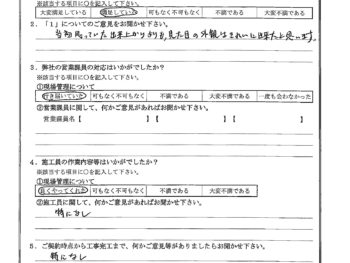 ※該当する項目に〇を記入して下さい。
大変満足している 満足している 可もなく不可もなく 不満である 大変不満である
2.「1」についてのご意見をお聞かせ下さい。
当初思っていた出来上がりよりも、見た目の外観はきれいに出来たと思います。
3.弊社の営業職員の対応はいかがでしたか?
※該当する項目に〇を記入して下さい。
①現場管理について
行き届いていた 可もなく不可もなく 不満である 大変不満である 一度も会わなかった
②営業職員に関して、何かご意見があればお聞かせ下さい。
営業職員名【 】 【 】
4.施工員の作業内容等はいかがでしたか?
※該当する項目に〇を記入して下さい。
①現場管理について
良くやってくれた 可もなく不可もなく 不満である 大変不満である
②施工員に関して、何かご意見があればお聞かせ下さい。
特になし
5.ご契約時点から工事完工まで、何かご意見等がありましたらお聞かせ下さい。
特になし